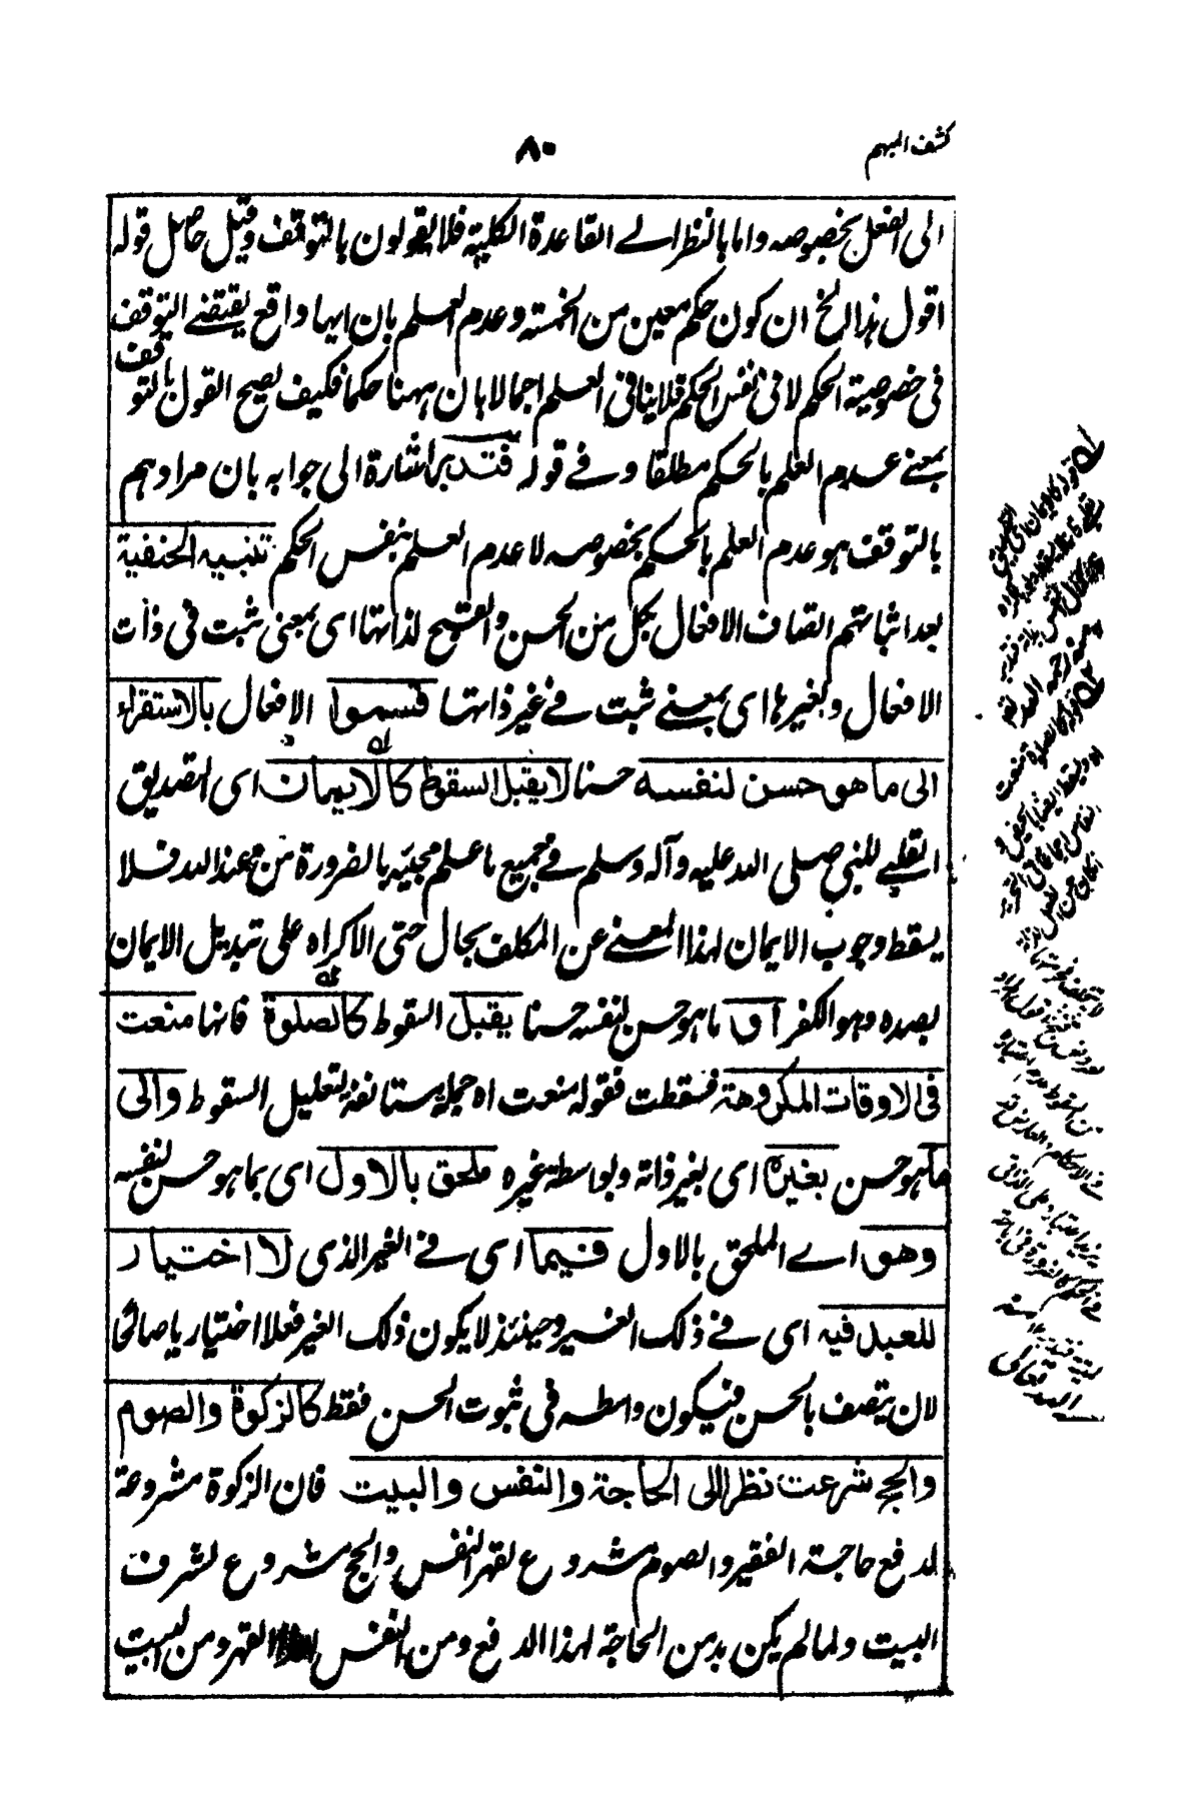 كشف المبهم
٨٠
الى الفعل بخصوصه واما بالنظر الے القاعدة الكلية فلا يقولون بالتوقف وقيل حاصل قوله
اقول هذا الخ ان كون حكم معين من الخمسة وعدم العلم بان ايها واقع يقتضے التوقف
فى خصوصية الحكم لا فى نفس الحكم فلا ينافى العلم اجمالا بان ههنا حكما فكيف يصح القول بالتوقف
بمعنے عدم العلم بالحكم مطلقا وفے قوله فتدبر اشارة الى جوابه بان مرادهم
بالتوقف هو عدم العلم بالحكم بخصوصه لا عدم العلم بنفس الحكم تنبيه الحنفية
بعد اثباتهم اتصاف الافعال بكل من الحسن والقبح لذاتها اى بمعنى ثبت فى ذات
الافعال وبغيرها اى بمعنے ثبت فے غير ذاتها قسموا الافعال بالاستقراء
الى ما هو حسن لنفسه حسنا لا يقبل السقوط كالايمان اى التصديق
القلبے للنبى صلى الله عليه وآله وسلم فے جميع ما علم مجيئه بالضرورة من عند الله فلا
يسقط وجوب الايمان لهذا المعنے عن المكلف بحال حتى الاكراه على تبديل الايمان
بضده وهو الكفر او ما هو حسن لنفسه حسنا يقبل السقوط كالصلوة فانها منعت
فى الاوقات المكروهة فسقطت فقوله منعت اه جملة مستانفة لتعليل السقوط والى
ما هو حسن بغيره اى بغير ذاته وبواسطة غيره ملحق بالاول اى بما هو حسن لنفسه
وهو اے الملحق بالاول فيما اى فے الغير الذى لا اختيار
للعبد فيه اى فے ذلك الغير وحينئذ لا يكون ذلك الغير فعلا اختياريا صالحا
لان يتصف بالحسن فيكون واسطه فى ثبوت الحسن فقط كالزكوة والصوم
والحج شرعت نظرا الى الحاجة والنفس والبيت فان الزكوة مشروعة
لدفع حاجة الفقير والصوم مشروع لقهر النفس والحج مشروع لشرف
البيت ولما لم يكن بد من الحاجة لهذا الدفع ومن النفس القهر ومن البيت